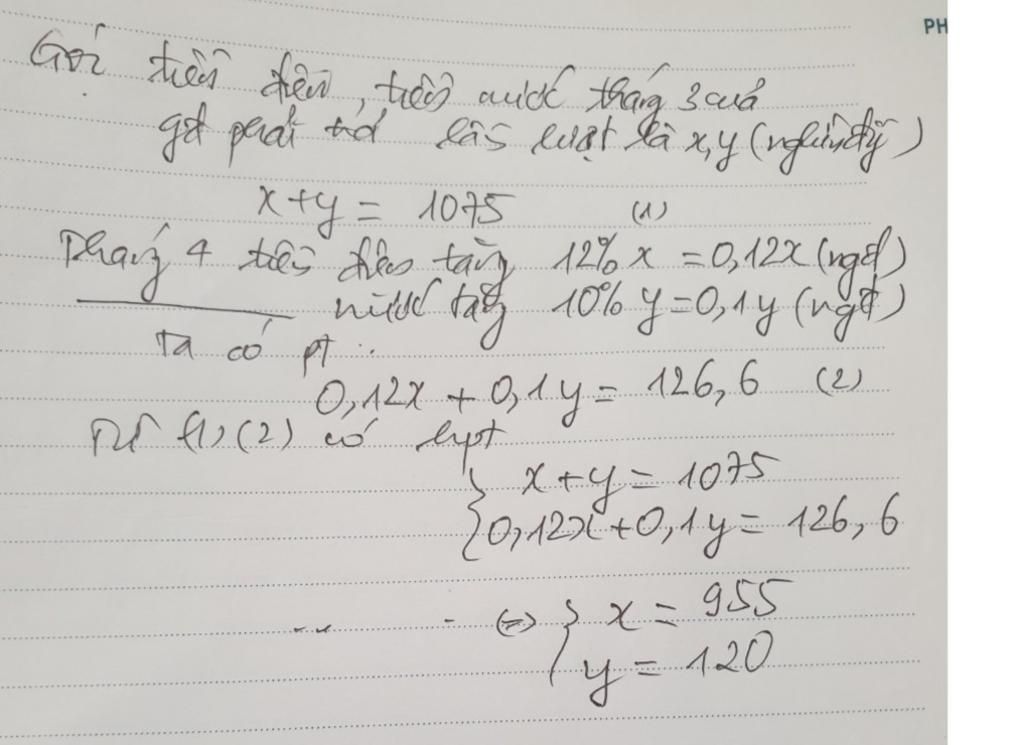 PH
Gọi tiền điện, tiền nước tháng 3 của
gđ phải trả lần lượt là x, y (nghìn đg)
x + y = 1075 (1)
Tháng 4 tiền điện tăng 12% x = 0,12x (ngđ)
nước tăng 10% y = 0,1y (ngđ)
Ta có pt :
0,12x + 0,1y = 126,6 (2)
Từ (1), (2) có hpt
{ x + y = 1075
0,12x + 0,1y = 126,6
... - ⇔ { x = 955
y = 120